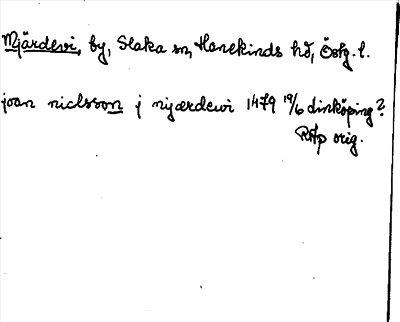 Mjärdevi, by, Slaka sn, Hanekinds hd, Östg. l.
joan niclsson j mjærdewi 1479 19/6 Linköping?
RAp orig.